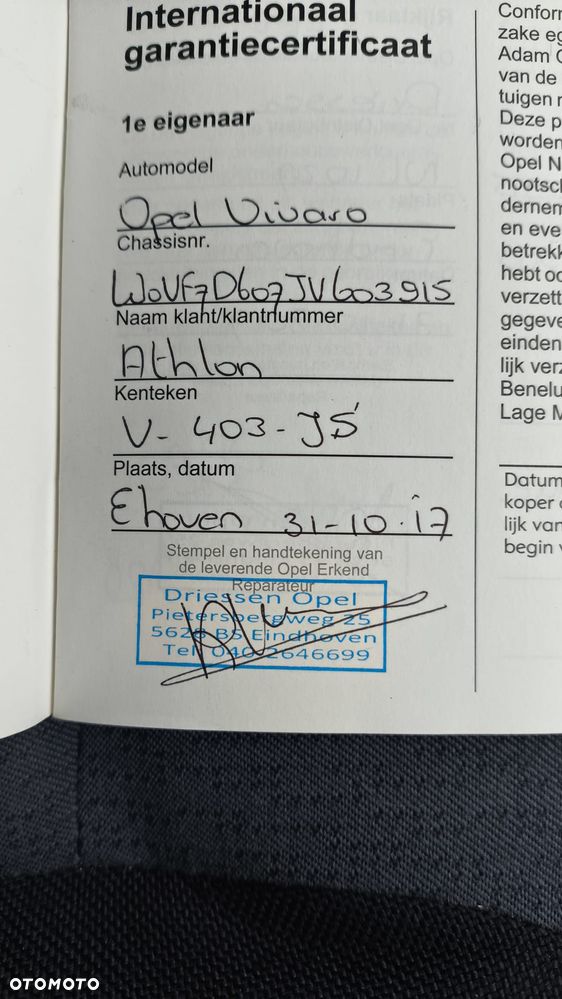 Internationaal
garantiecertificaat
1e eigenaar
Automodel
Opel Vivaro
Chassisnr.
W0VF7D607JV603915
Naam klant/klantnummer
Athlon
Kenteken
V-403-JS
Plaats, datum
Ehoven 31-10-17
Stempel en handtekening van
de leverende Opel Erkend
Reparateur
Driessen Opel
Pietersbergweg 25
BS Eindhoven
Tel. 040-2646699
Conform
zake eg
Adam O
van de
tuigen
Deze p
worden
Opel N
nootsch
dernem
en eve
betrekk
hebt oo
verzett
gegeve
einden
lijk verz
Benelu
Lage M
Datum
koper
lijk van
begin
OTOMOTO